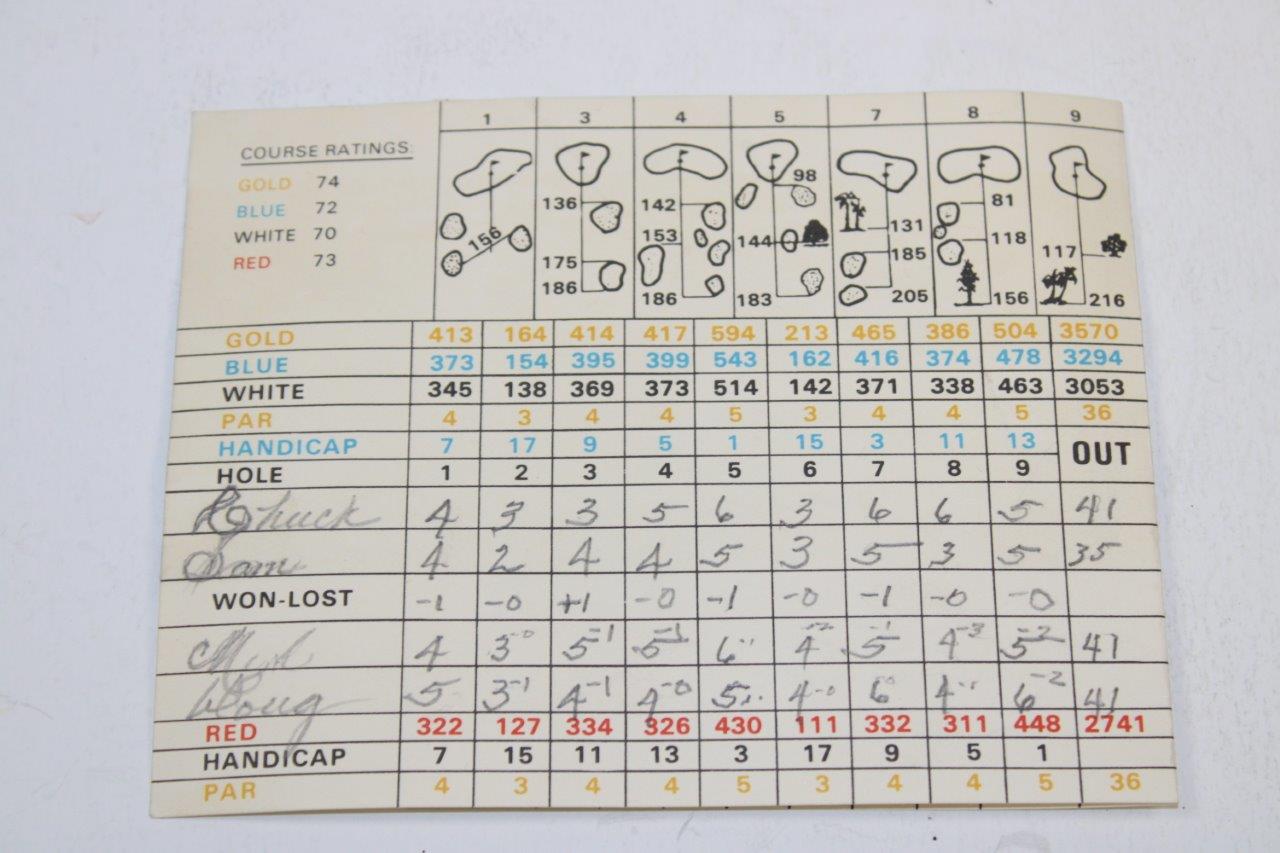 1 3 4 5 7 8 9
COURSE RATINGS:
GOLD 74
BLUE 72
WHITE 70
RED 73
156
136
175
186
142
153
186
98
144
183
131
185
205
81
118
156
117
216
GOLD 413 164 414 417 594 213 465 386 504 3570
BLUE 373 154 395 399 543 162 416 374 478 3294
WHITE 345 138 369 373 514 142 371 338 463 3053
PAR 4 3 4 4 5 3 4 4 5 36
HANDICAP 7 17 9 5 1 15 3 11 13
OUT
HOLE 1 2 3 4 5 6 7 8 9
4 3 3 5 6 3 6 6 5 41
Sam 4 2 4 4 5 3 5 3 5 35
WON-LOST -1 -0 +1 -0 -1 -0 -1 -0 -0
4 3-0 5-1 5-1 6 4-2 5-1 4-3 5-2 41
Doug 5 3-1 4-1 4-0 5 4-0 6 4 6-2 41
RED 322 127 334 326 430 111 332 311 448 2741
HANDICAP 7 15 11 13 3 17 9 5 1
PAR 4 3 4 4 5 3 4 4 5 36